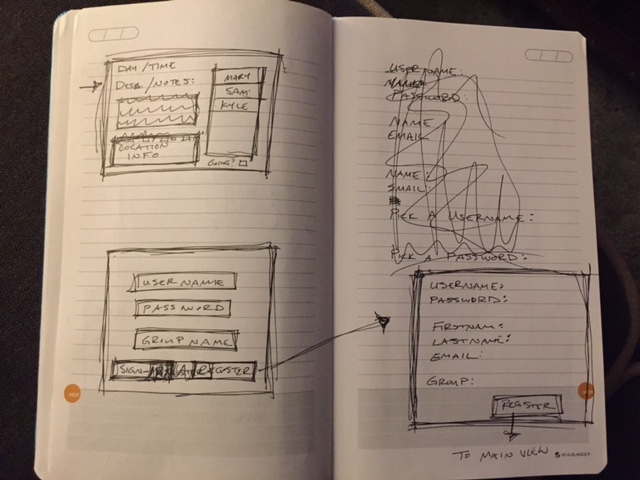 DAY/TIME
DESC/NOTES:
MARY
SAM
KYLE
LOCATION
INFO
GOING?
USERNAME
PASSWORD
GROUP NAME
SIGN REGISTER
USERNAME:
PASSWORD:
NAME
EMAIL
NAME:
EMAIL:
PICK A USERNAME:
PICK A PASSWORD:
USERNAME:
PASSWORD:
FIRSTNAME:
LASTNAME:
EMAIL:
GROUP:
REGISTER
TO MAIN VIEW